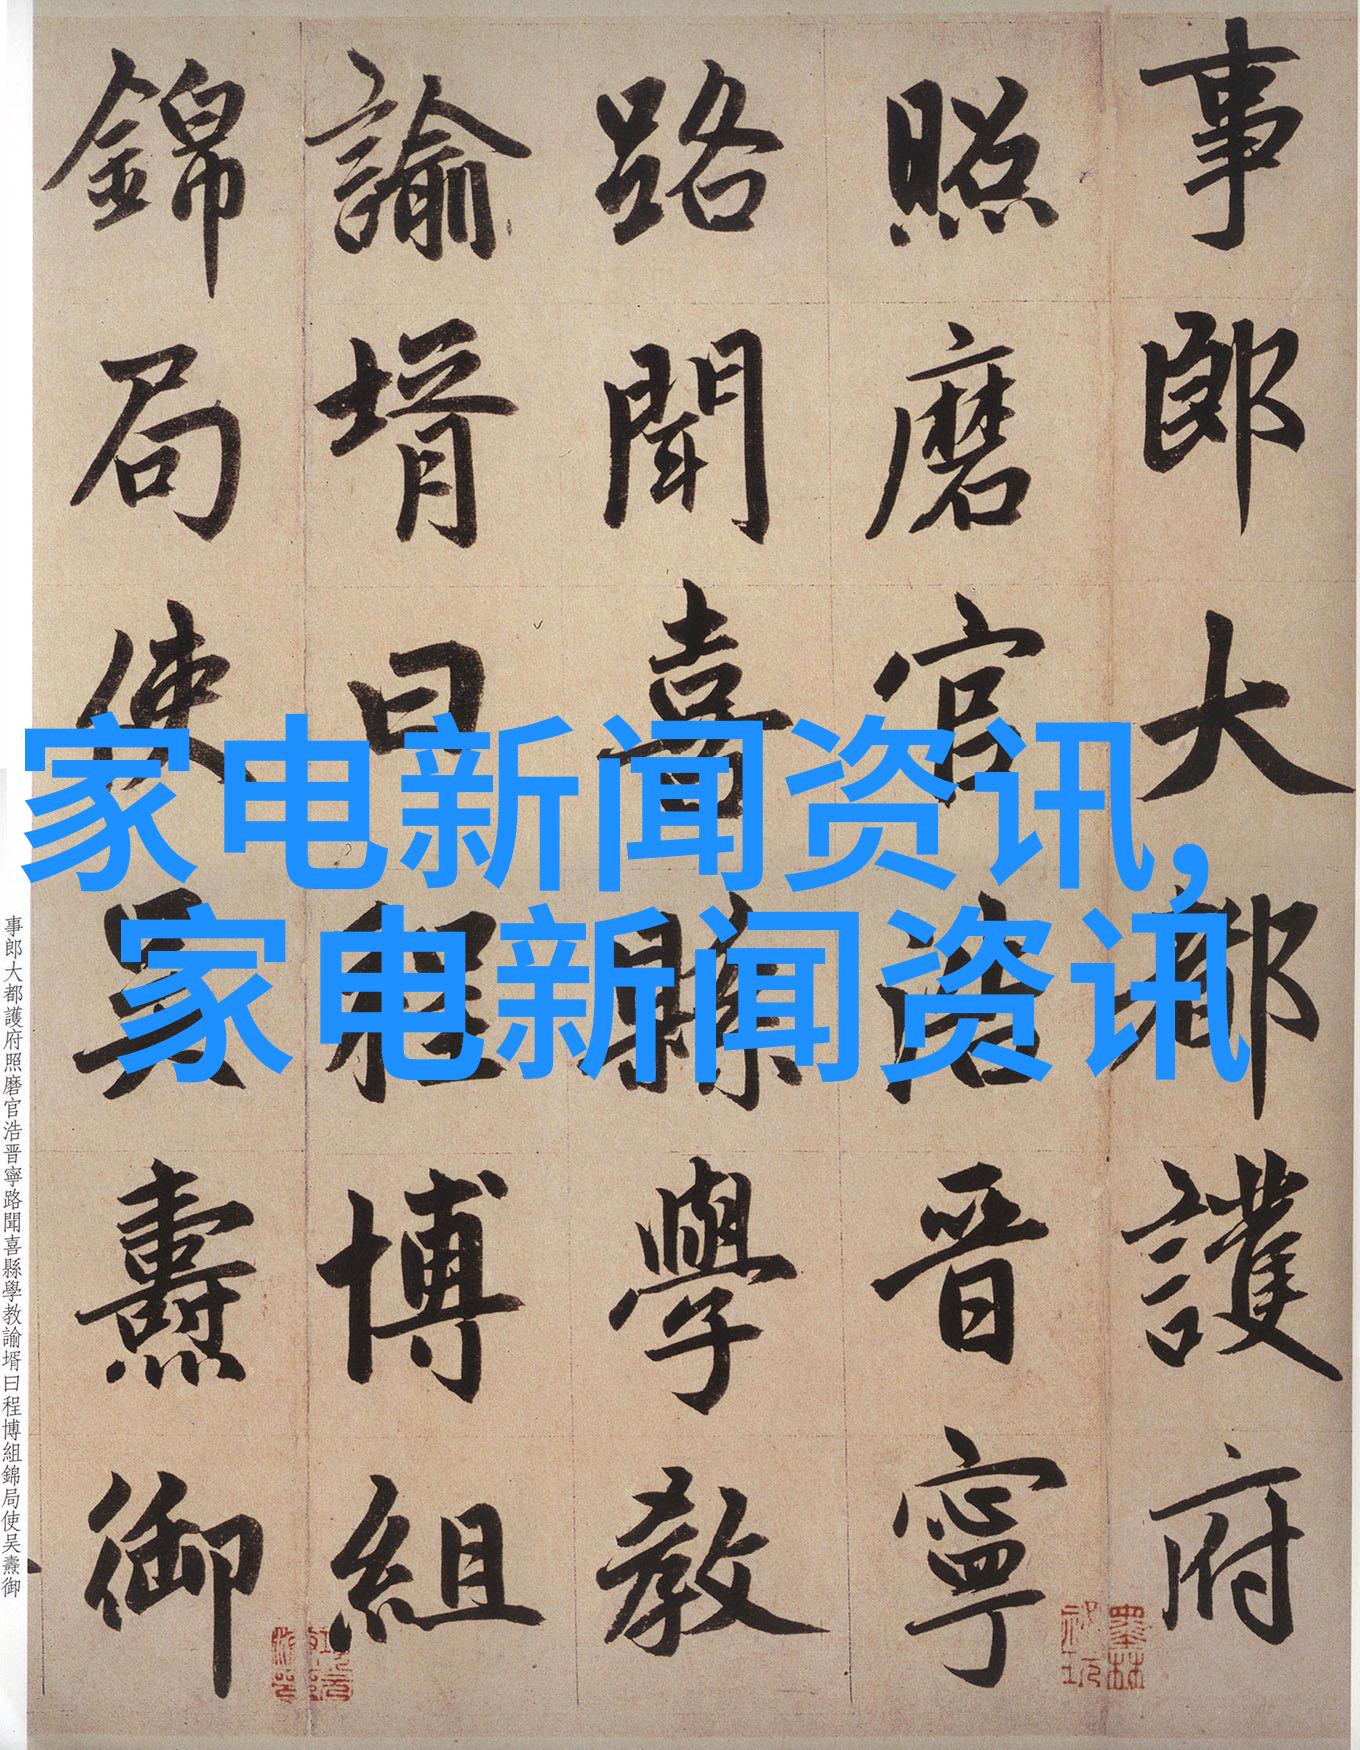 事郎大都護府
照磨官浩晋寧
路聞喜縣學教
諭壻曰程博組
錦局使吴燾御
家电新闻资讯,
家电新闻资讯
事郎大都護府照磨官浩晋寧路聞喜縣學教諭壻曰程博組錦局使吴燾御